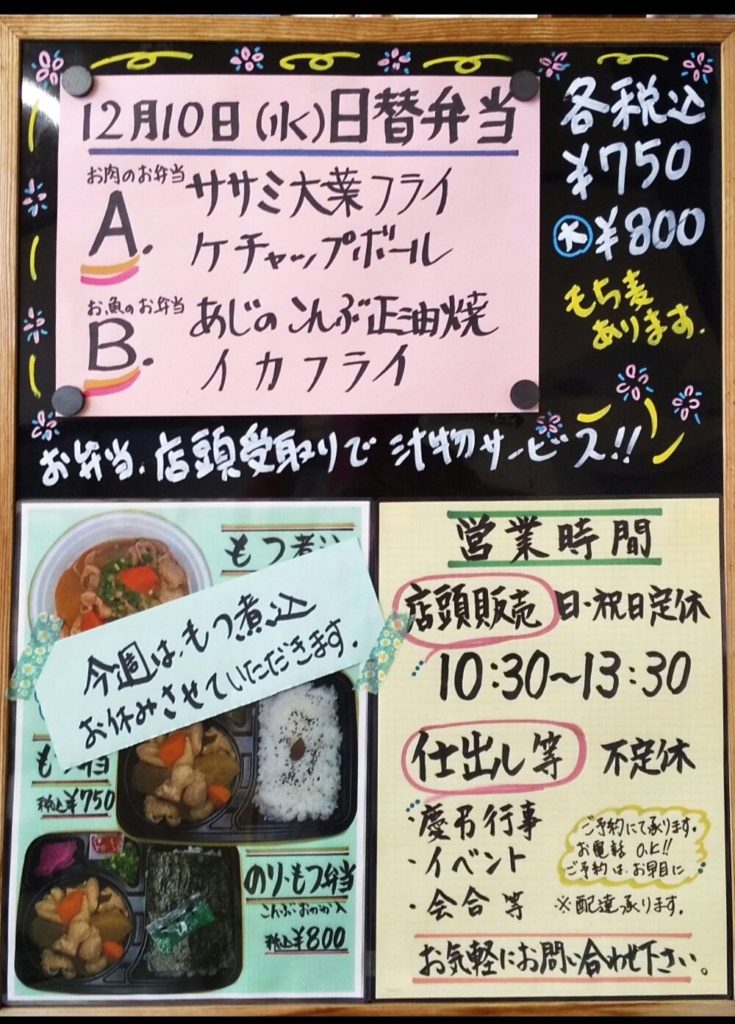 12月10日(水)日替弁当
お肉のお弁当
A.
ササミ大葉フライ
ケチャップボール
お魚のお弁当
B.
あじのこんぶ正油焼
イカフライ
各税込
¥750
大¥800
もち麦
あります.
お弁当、店頭受取りで 汁物サービス!!
もつ煮込
今週は、もつ煮込
お休みさせていただきます.
税込¥750
のり・もつ弁当
こんぶおかか入
税込¥800
営業時間
店頭販売 日・祝日定休
10:30〜13:30
仕出し等 不定休
・慶弔行事
・イベント
・会合等
ご予約にて承ります.
お電話 O.K!!
ご予約は、お早目に
※配達承ります.
お気軽にお問い合わせ下さい。